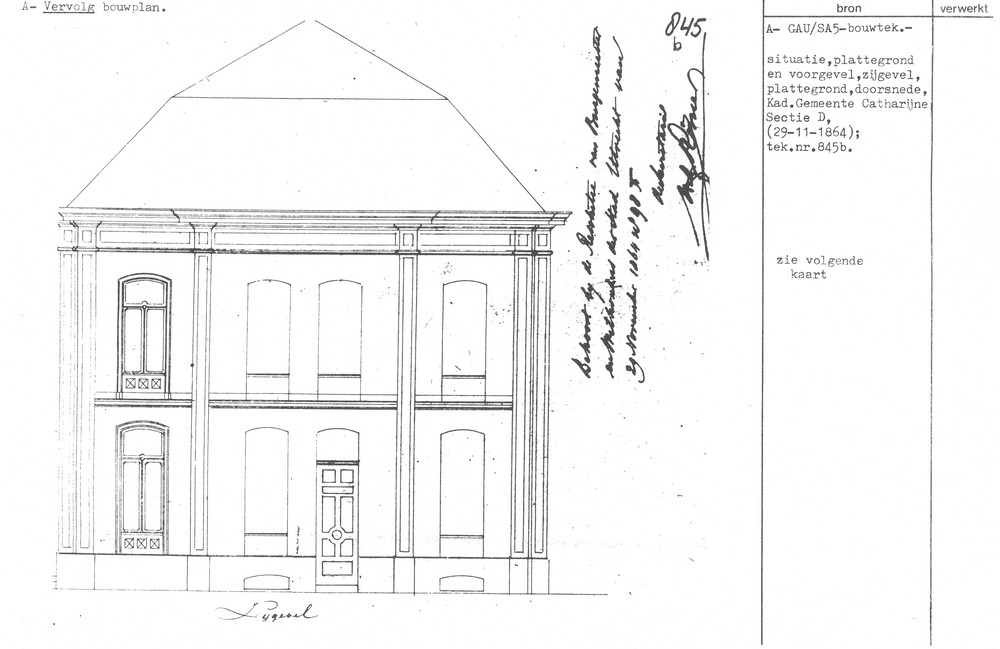 A- Vervolg bouwplan.
bron
verwerkt
A- GAU/SA5-bouwtek.-
situatie,plattegrond
en voorgevel,zijgevel,
plattegrond,doorsnede,
Kad.Gemeente Catharijne
Sectie D,
(29-11-1864);
tek.nr.845b.
zie volgende
kaart
845
b
Behoort bij de Resolutie van Burgemeester
en Wethouders der stad Utrecht van
29 November 1864 No 98
Zijgevel